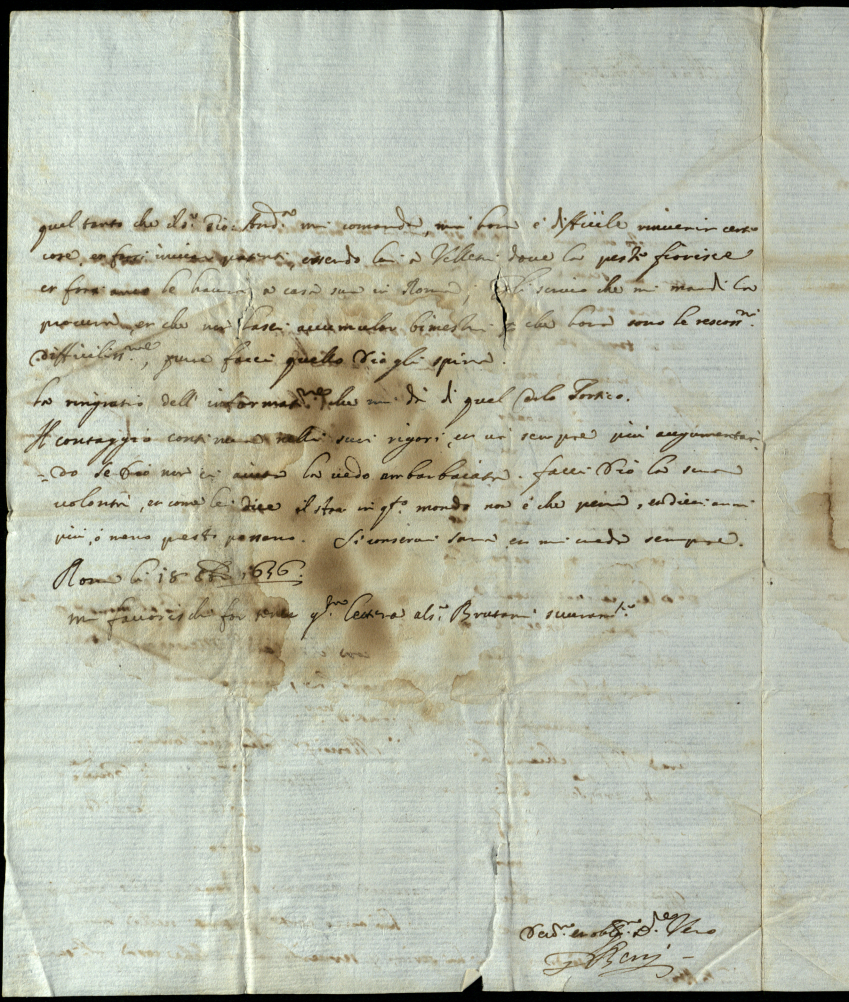 quel tanto che il s.r Gio: And.a mi comanda, ma hora è difficile rinvenir certe
cose, et farsi inviar, essendo lui a Velletri dove la peste fiorisce
et forsi anco le haurà a casa sua in Roma; che mi mandi la
procura, et che non lasci accumular bimestri che hora sono le
difficiliss.me, pure facci quello Dio gli spira.
La ringratio dell' informat.ne che mi dà di quel delo Portico.
Il contaggio continua nelli suoi rigori, et và sempre più augumentan
=do se Dio non ci aiuta la vedo imbarbaiata. facci Dio la sua
volontà, et come lei dice il star in q.to mondo non è che pena, et dieci anni
più, ò meno presto passano. Si conservi sana et mi creda sempre.
Roma li 18 8bre 1656.
mi favorisch far tener q.sta lettera al s.r Brutami sicuram.te
Ser.re Vero